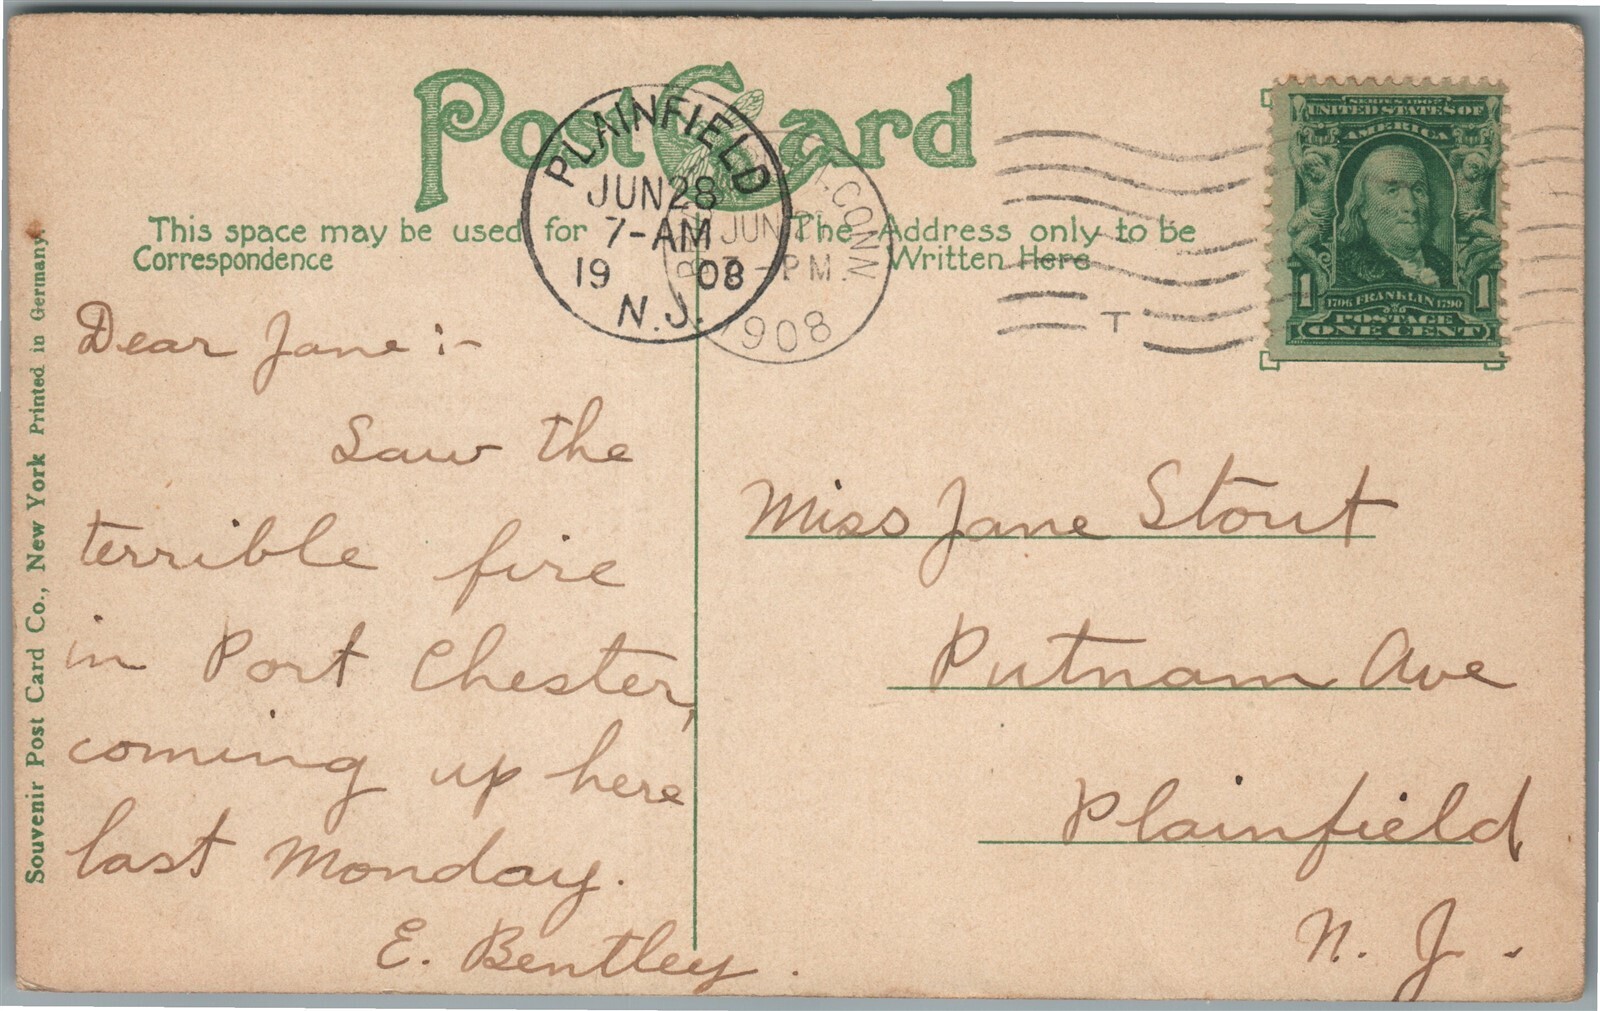 Post Card
This space may be used for
Correspondence
The Address only to be
Written Here
PLAINFIELD
JUN 28
7-AM
19 08
N.J.
CONN
JUN
7-PM.
1908
T
SERIES 1902
UNITED STATES OF
AMERICA
1 1
1706 FRANKLIN 1790
POSTAGE
ONE CENT
Dear Jane :-
Saw the
terrible fire
in Port Chester,
coming up here
last Monday.
E. Bentley.
Miss Jane Stout
Putnam Ave
Plainfield
N. J.
Souvenir Post Card Co., New York Printed in Germany.